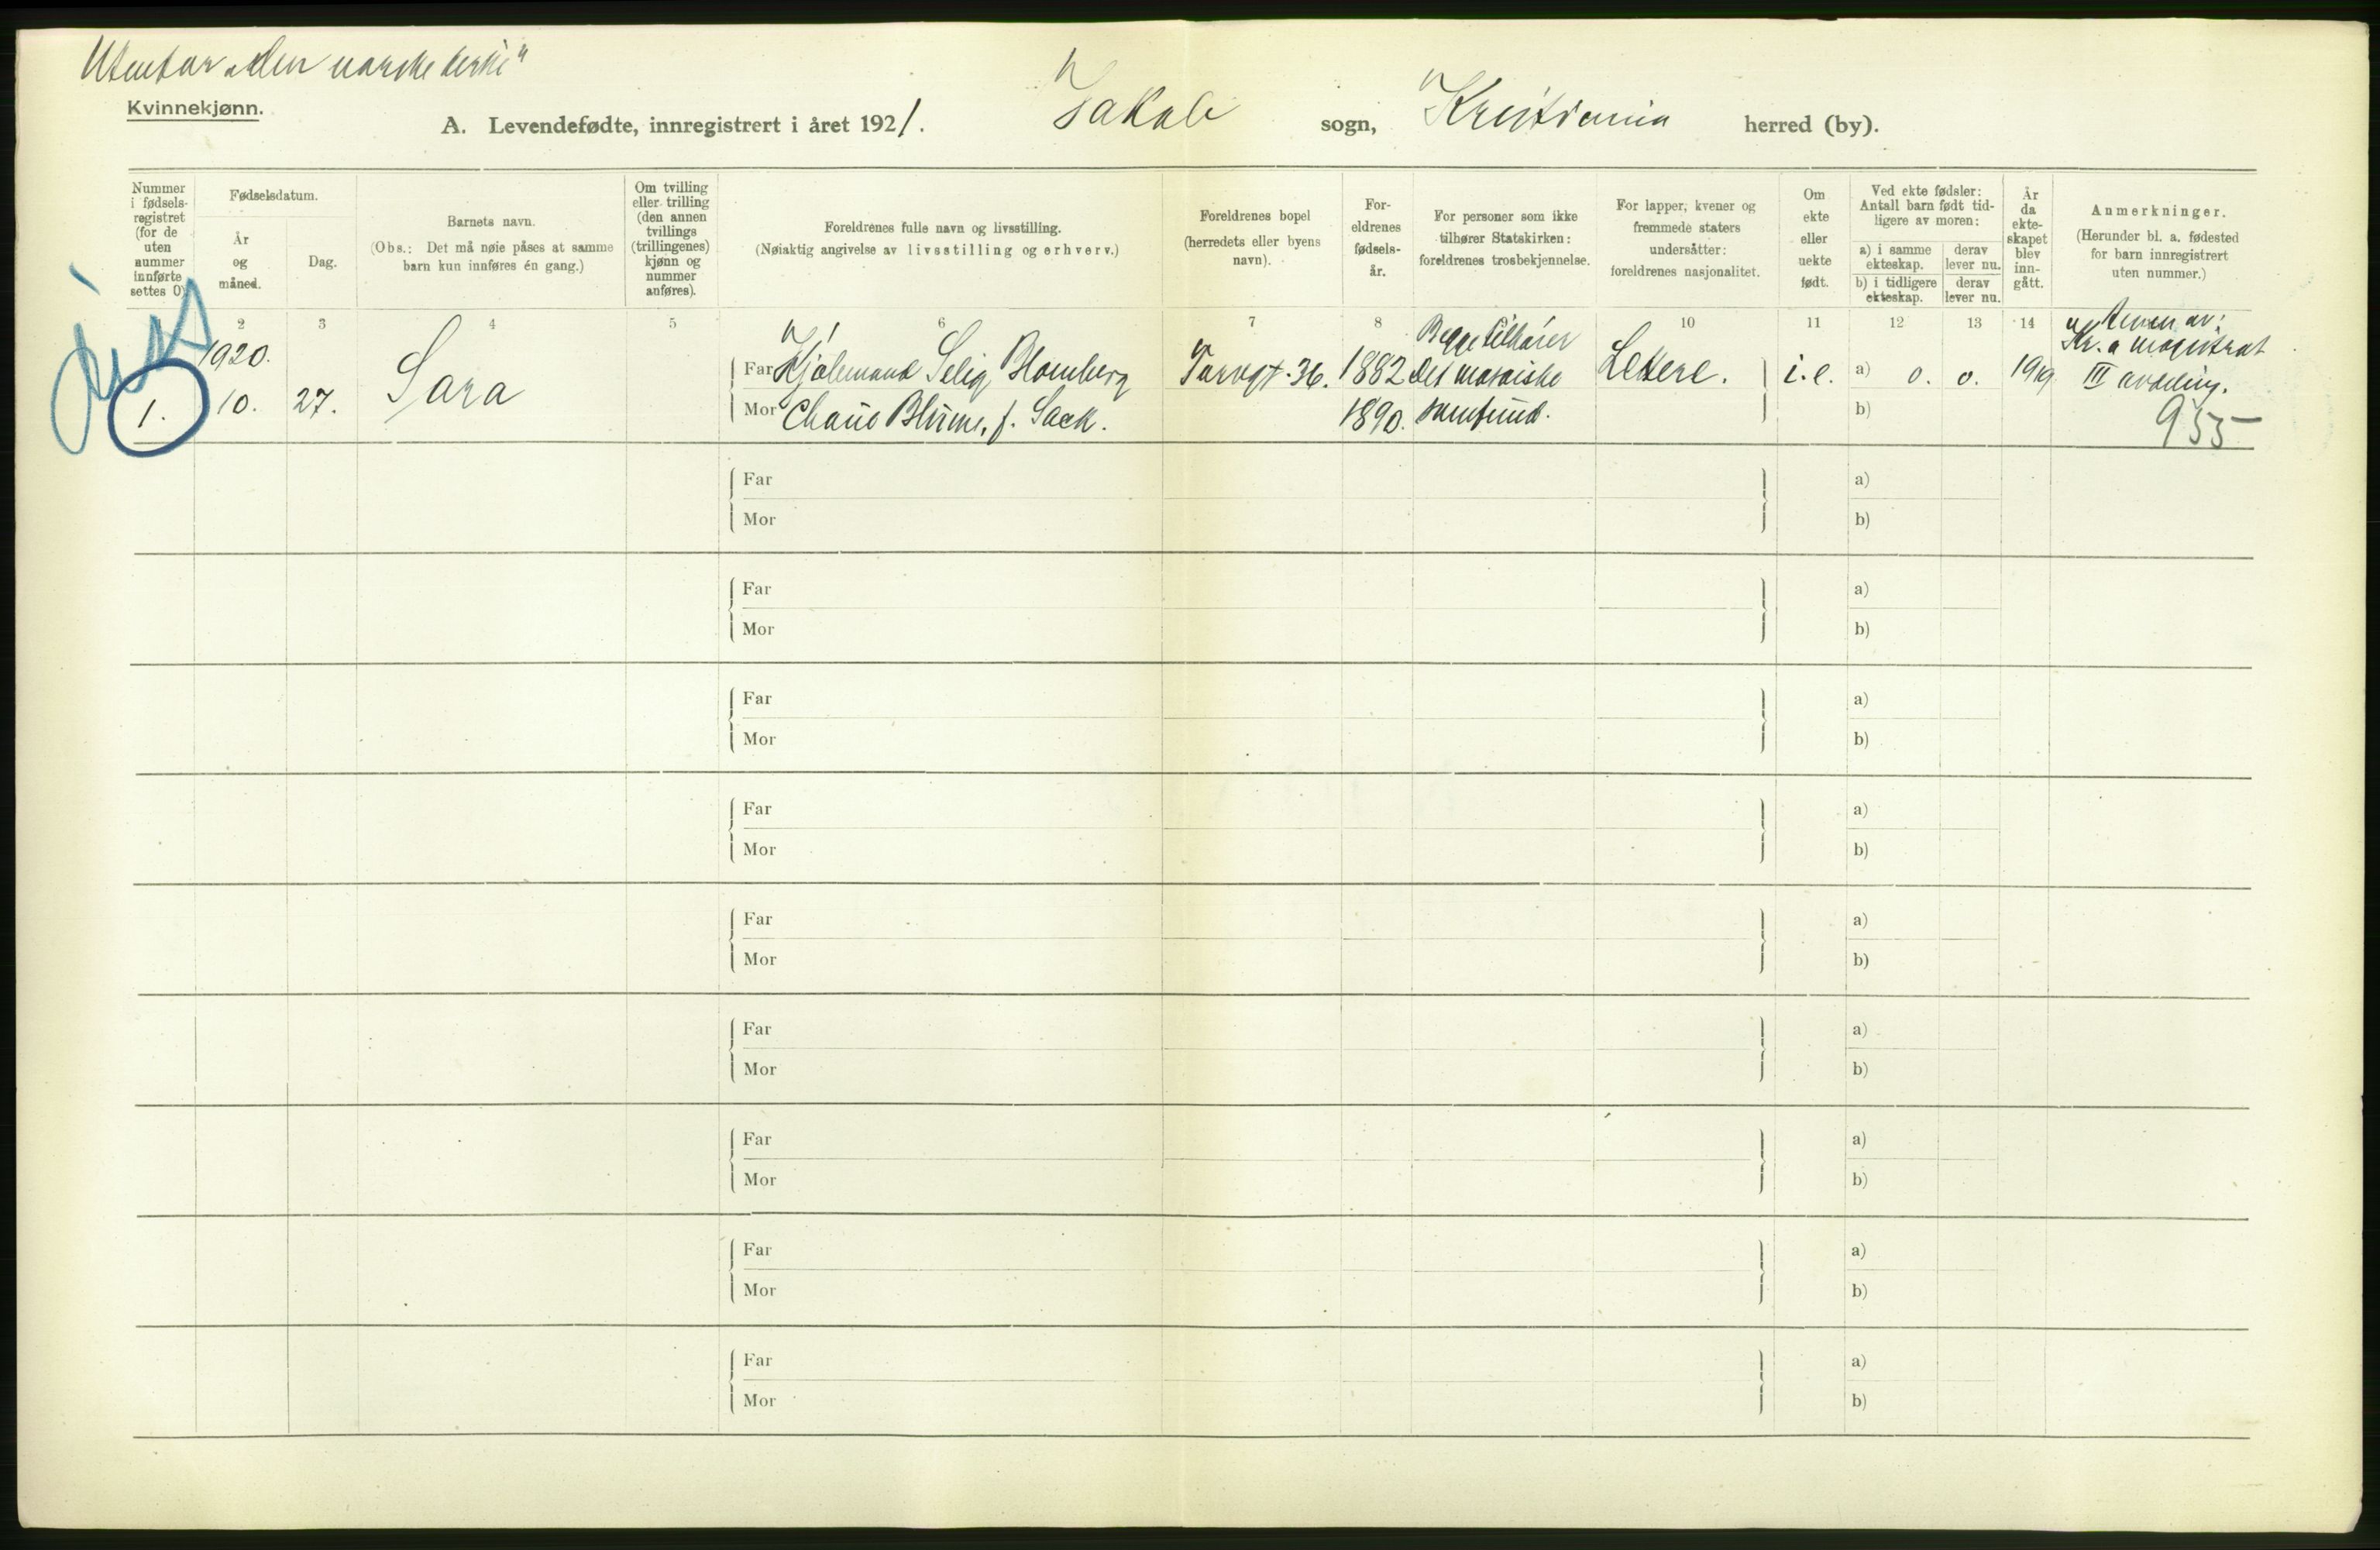 Utenfor „den norske kirke"
Kvinnekjønn.
A. Levendefødte, innregistrert i året 1921. Jakob sogn, Kristiania herred (by).
Nummer i fødselsregistret (for de uten nummer innførte settes 0)
Fødselsdatum.
År og måned.
Dag.
Barnets navn.
(Obs.: Det må nøie påses at samme barn kun innføres én gang.)
Om tvilling eller trilling (den annen tvillings (trillingenes) kjønn og nummer anføres).
Foreldrenes fulle navn og livsstilling.
(Nøiaktig angivelse av livsstilling og erhverv.)
Foreldrenes bopel (herredets eller byens navn).
Foreldrenes fødselsår.
For personer som ikke tilhører Statskirken: foreldrenes trosbekjennelse.
For lapper, kvener og fremmede staters undersåtter: foreldrenes nasjonalitet.
Om ekte eller uekte født.
Ved ekte fødsler: Antall barn født tidligere av moren:
a) i samme ekteskap.
derav lever nu.
b) i tidligere ekteskap.
derav lever nu.
År da ekteskapet blev inngått.
Anmerkninger.
(Herunder bl. a. fødested for barn innregistrert uten nummer.)
2 3 4 5 6 7 8 10 11 12 13 14
1. 1920. 10. 27. Sara
Far Hjalemann Selig Blomberg Torvgt. 36. 1882 Begge tilhører Det mosaiske samfund. Lettere. i.e. a) 0. 0. 1919
Mor Chane Blume, f. Sack. 1890. b)
av:
Kr.a magistrat
III avdeling.
955
Far a)
Mor b)
Far a)
Mor b)
Far a)
Mor b)
Far a)
Mor b)
Far a)
Mor b)
Far a)
Mor b)
Far a)
Mor b)
Far a)
Mor b)
Far a)
Mor b)